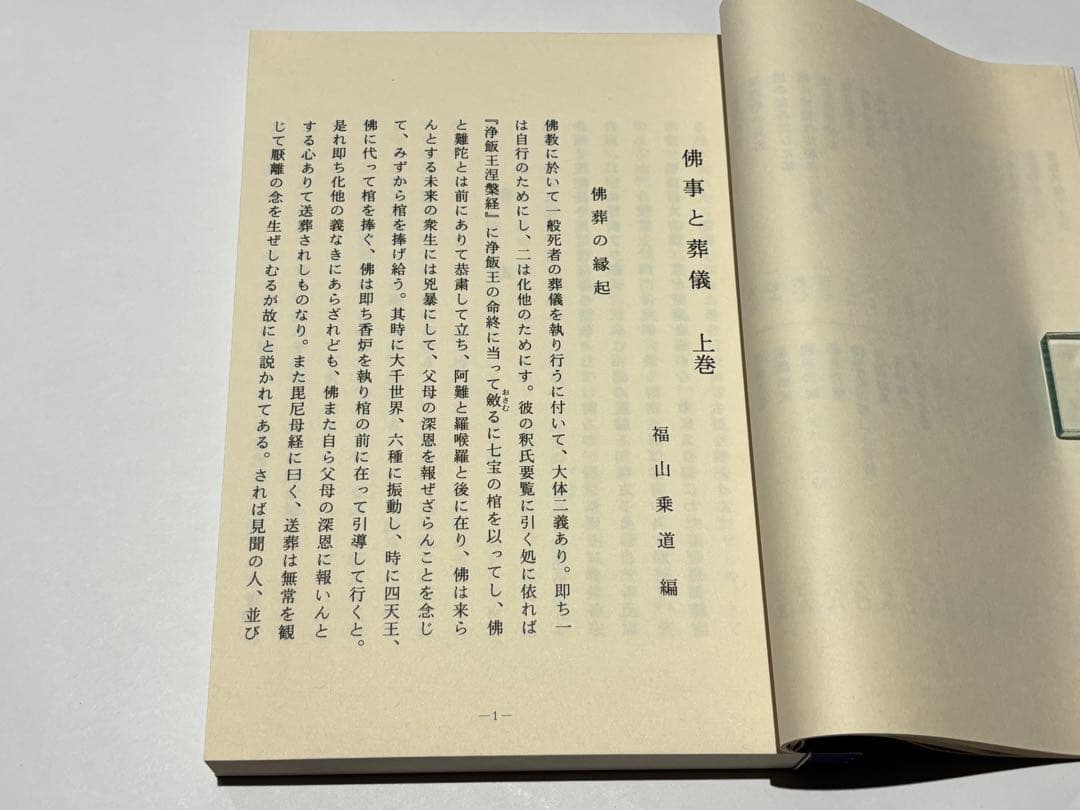 佛事と葬儀　上巻
福山乗道　編
佛葬の縁起
佛教に於いて一般死者の葬儀を執り行うに付いて、大体二義あり。即ち一
は自行のためにし、二は化他のためにす。彼の釈氏要覧に引く処に依れば
『浄飯王涅槃経』に浄飯王の命終に当って斂るに七宝の棺を以ってし、佛
おさむ
と難陀とは前にありて恭粛して立ち、阿難と羅喉羅と後に在り、佛は来ら
んとする未来の衆生には兇暴にして、父母の深恩を報ぜざらんことを念じ
て、みずから棺を捧げ給う。其時に大千世界、六種に振動し、時に四天王、
佛に代って棺を捧ぐ、佛は即ち香炉を執り棺の前に在って引導して行くと。
是れ即ち化他の義なきにあらざれども、佛また自ら父母の深恩に報いんと
する心ありて送葬されしものなり。また毘尼母経に曰く、送葬は無常を観
じて厭離の念を生ぜしむるが故にと説かれてある。されば見聞の人、並び
―1―